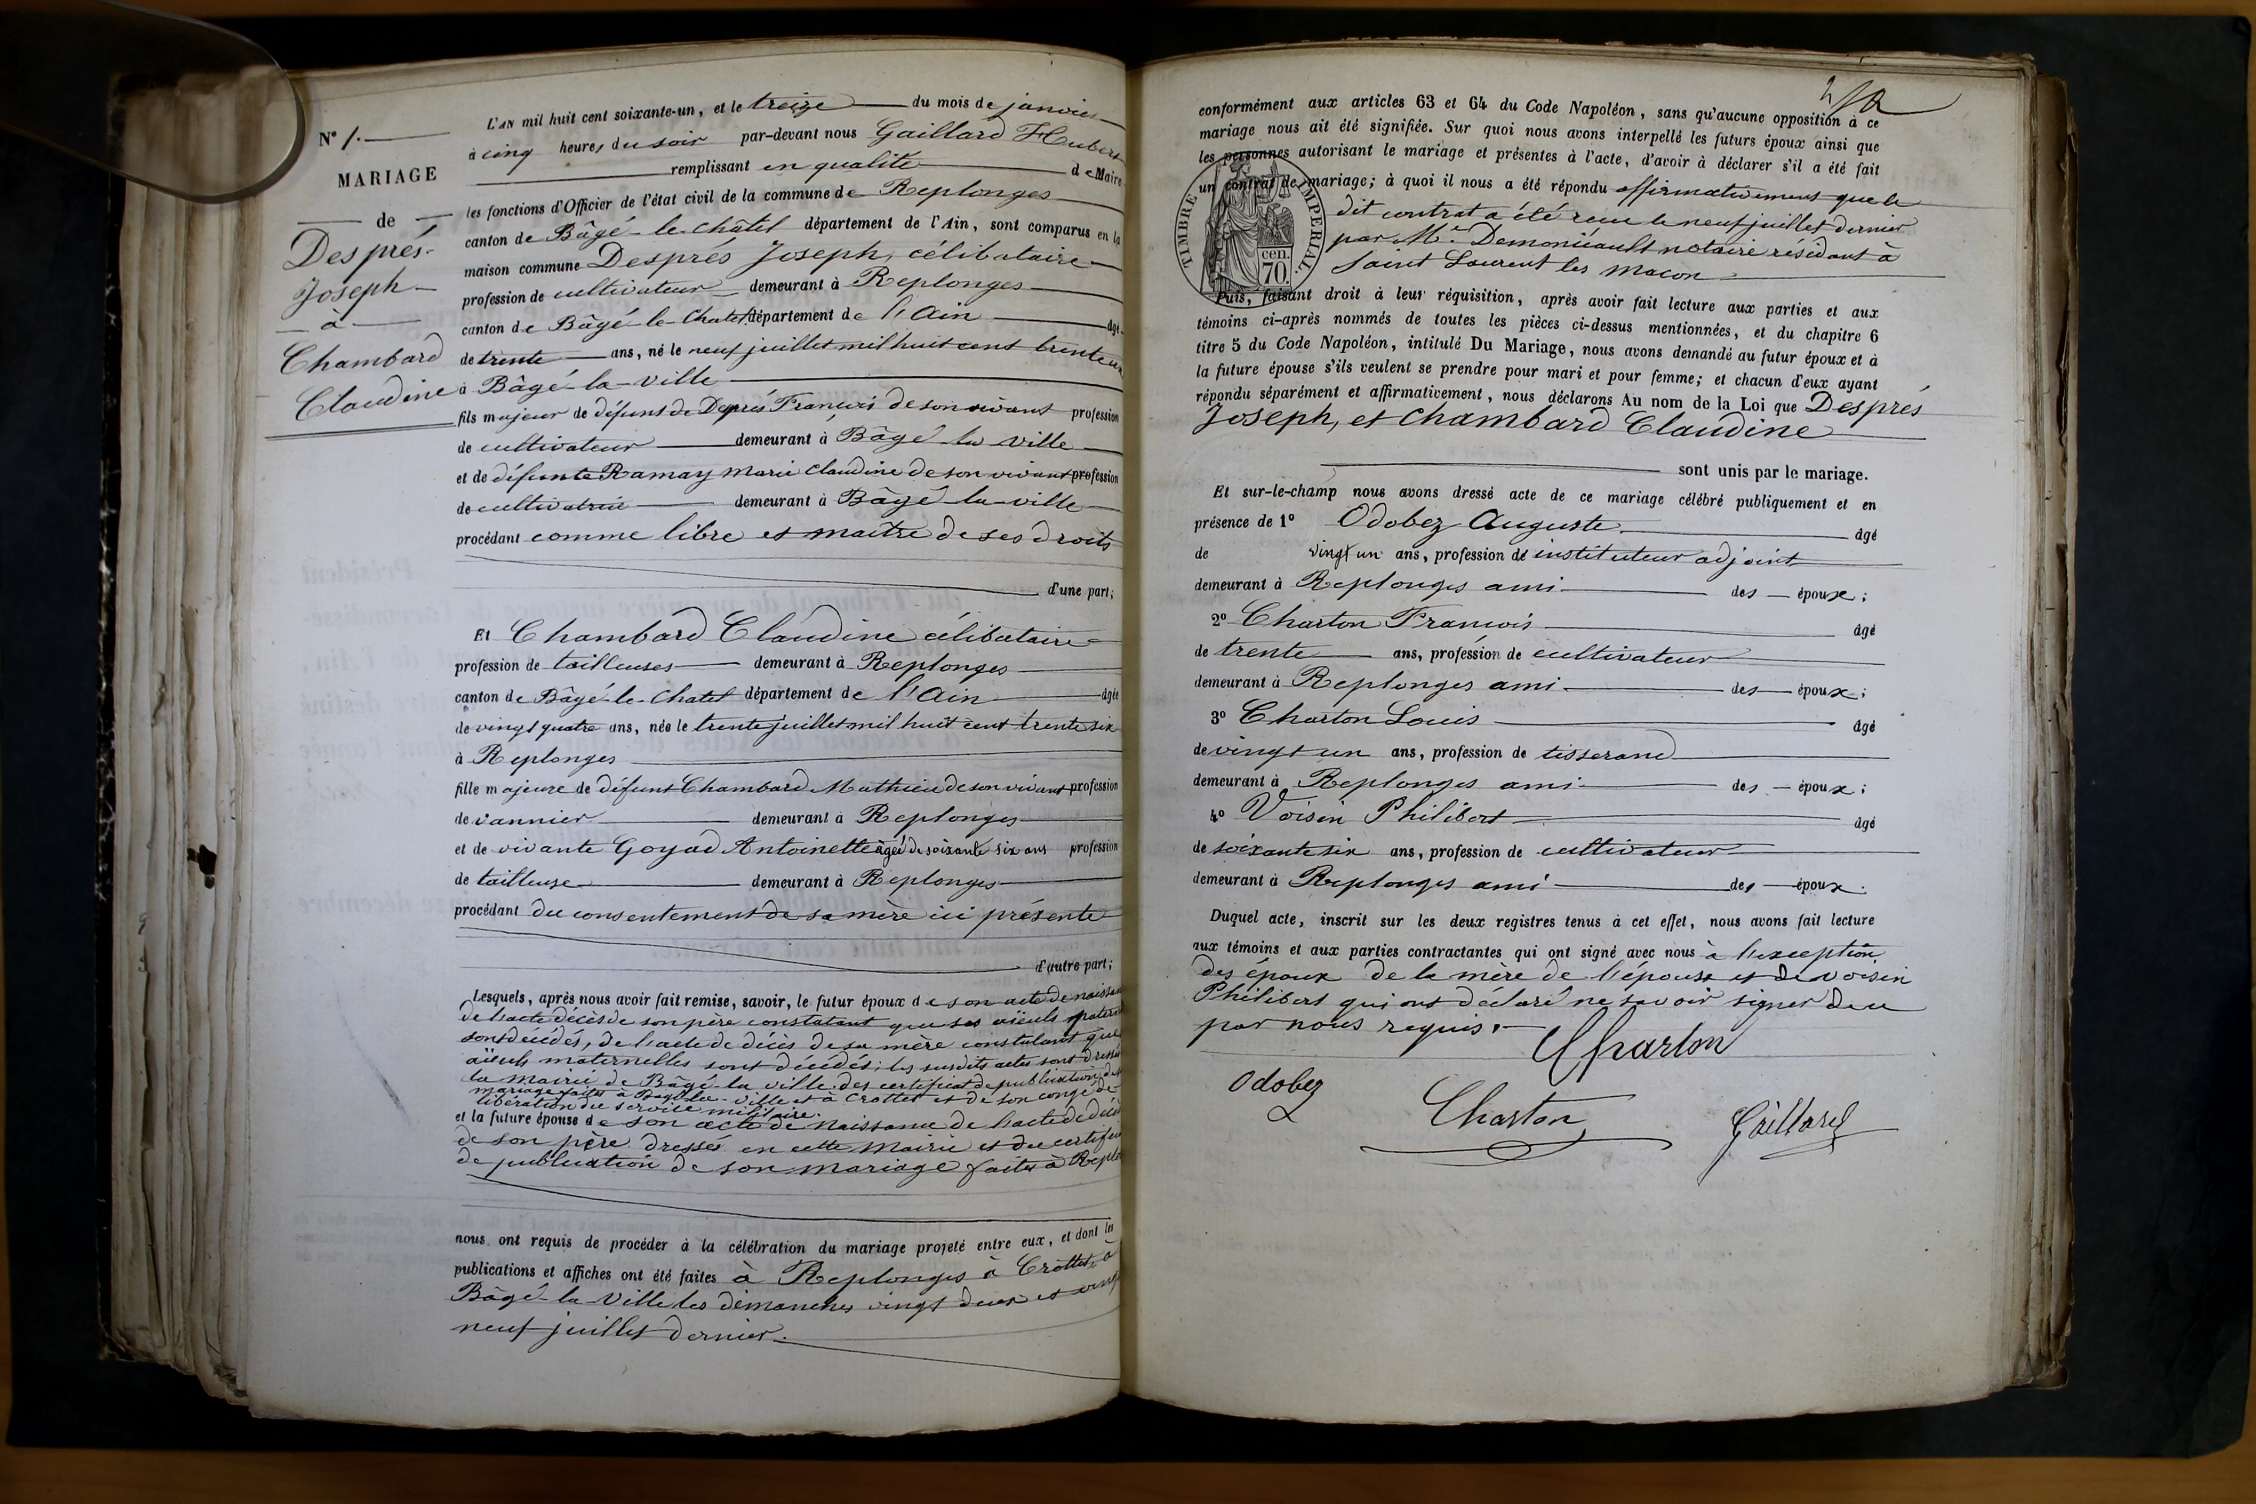 N° 1.
MARIAGE
de
Després
Joseph
à
Chambard
Claudine
L'AN mil huit cent soixante-un, et le treize du mois de janvier
à cinq heures du soir par-devant nous Gaillard Hubert
remplissant en qualité de Maire
les fonctions d'Officier de l'état civil de la commune de Replonges
canton de Bâgé-le-châtel département de l'Ain, sont comparus en la
maison commune Després Joseph, célibataire
profession de cultivateur demeurant à Replonges
canton de Bâgé-le-Chatel département de l'Ain âgé
de trente ans, né le neuf juillet mil huit cent trente
à Bâgé-la-ville
fils majeur de défunt de Després François de son vivant profession
de cultivateur demeurant à Bâgé la ville
et de défunte Ramay Marie Claudine de son vivant profession
de cultivatrice demeurant à Bâgé la-ville
procédant comme libre et maître de ses droits
d'une part;
Et Chambard Claudine célibataire
profession de tailleuses demeurant à Replonges
canton de Bâgé-le-Chatel département de l'Ain âgée
de vingt quatre ans, née le trente juillet mil huit cent trente six
à Replonges
fille majeure de défunt Chambard Mathieu de son vivant profession
de vannier demeurant à Replonges
et de vivante Goyad Antoinette âgée de soixante six ans profession
de tailleuse demeurant à Replonges
procédant du consentement de sa mère ici présente
d'autre part;
Lesquels, après nous avoir fait remise, savoir, le futur époux de son acte de
de l'acte décès de son père constatant que ses aïeuls
sont décédés, de l'acte de décès de sa mère constatant que
aïeuls maternelles sont décédés; les susdits actes sont
la mairie de Bâgé-la ville des certificat de publication de
mariage faites à Bagé-la-ville et à Crottet et de son congé de
libération du service militaire.
et la future épouse de son acte de naissance de l'acte de
de son père dressés en cette Mairie et du
de publication de son mariage faites à
nous ont requis de procéder à la célébration du mariage projeté entre eux, et dont les
publications et affiches ont été faites à Replonges à Crottet à
Bâgé-la Ville les dimanches vingt deux et vingt
neuf juillet dernier.
conformément aux articles 63 et 64 du Code Napoléon, sans qu'aucune opposition à ce
mariage nous ait été signifiée. Sur quoi nous avons interpellé les futurs époux ainsi que
les personnes autorisant le mariage et présentes à l'acte, d'avoir à déclarer s'il a été fait
un contrat de mariage; à quoi il nous a été répondu affirmativement que le
dit contrat a été reçu le neuf juillet dernier
par Me Demoniéault notaire résidant à
Saint Laurent les Macon
TIMBRE IMPERIAL.
cen.
70.
Puis, faisant droit à leur réquisition, après avoir fait lecture aux parties et aux
témoins ci-après nommés de toutes les pièces ci-dessus mentionnées, et du chapitre 6
titre 5 du Code Napoléon, intitulé Du Mariage, nous avons demandé au futur époux et à
la future épouse s'ils veulent se prendre pour mari et pour femme; et chacun d'eux ayant
répondu séparément et affirmativement, nous déclarons Au nom de la Loi que Després
Joseph, et Chambard Claudine
sont unis par le mariage.
Et sur-le-champ nous avons dressé acte de ce mariage célébré publiquement et en
présence de 1° Odobez Auguste âgé
de vingt un ans, profession de instituteur adjoint
demeurant à Replonges ami des époux;
2° Charton François âgé
de trente ans, profession de cultivateur
demeurant à Replonges ami des époux;
3° Charton Louis âgé
de vingt un ans, profession de tisserand
demeurant à Replonges ami des époux;
4° Voisin Philibert âgé
de soixante six ans, profession de cultivateur
demeurant à Replonges ami des époux.
Duquel acte, inscrit sur les deux registres tenus à cet effet, nous avons fait lecture
aux témoins et aux parties contractantes qui ont signé avec nous à l'exception
des époux de la mère de l'épouse et de Voisin
Philibert qui ont déclaré ne savoir signer de ce
par nous requis.
Charton
Odobez
Charton
Gaillard